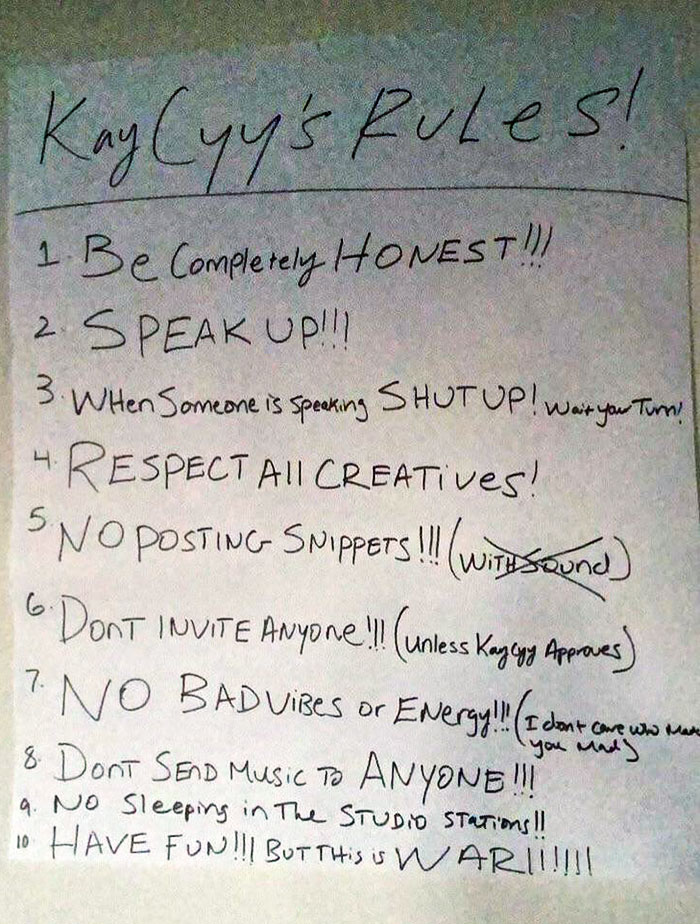 KayCyy's RULes!
1. Be Completely HONEST!!!
2. SPEAK UP!!!
3. WHen Someone is speaking SHUT UP! Wait your Turn!
4. RESPECT All CREATives!
5. NO POSTING SNIPPETS!!! (WITH Sound)
6. DonT INVITE ANyone!!! (unless KayCyy Approves)
7. NO BAD VIBes or ENergy!!! (I dont care who
you mad)
8. DonT SEND Music To ANYONE!!!
9. NO Sleeping in The STUDIO STATions!!
10 HAVE FUN!!! BUT THis is WAR!!!!!!